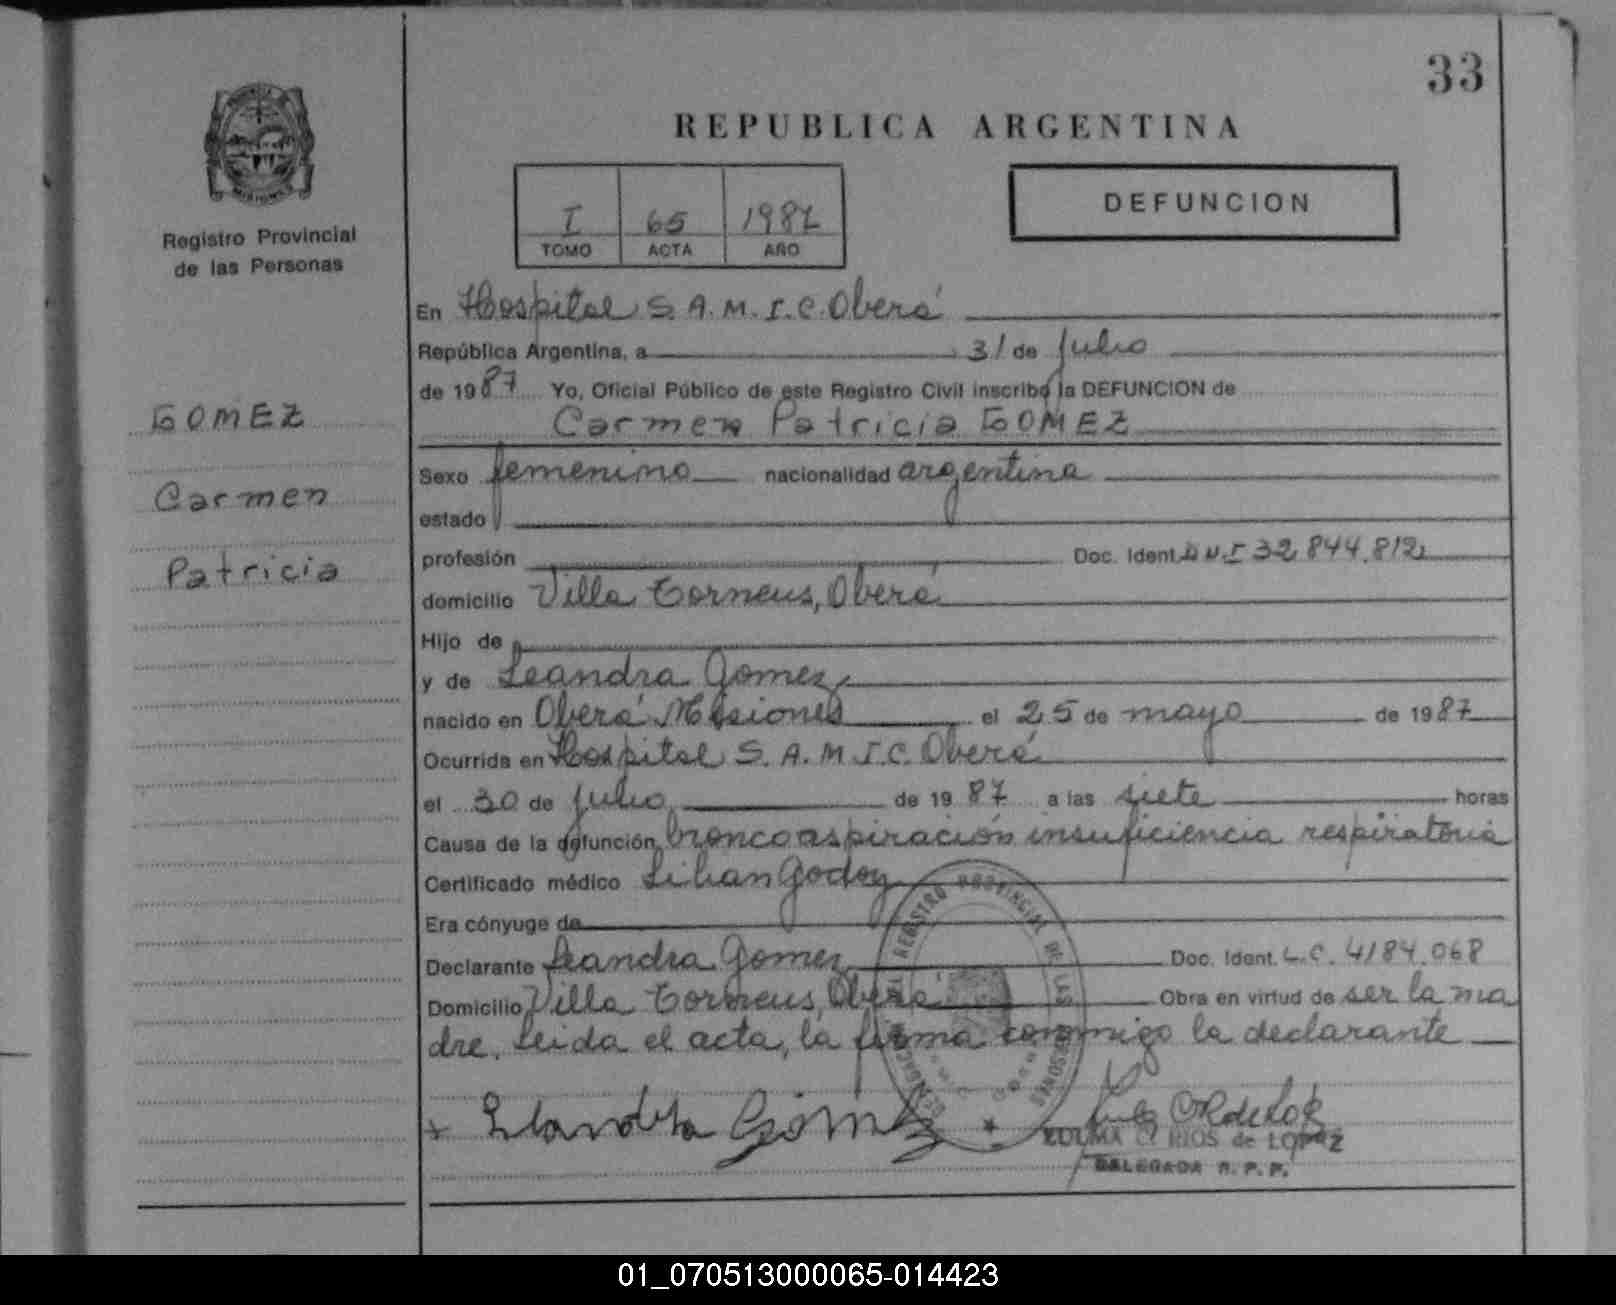 33
REPUBLICA ARGENTINA
Registro Provincial
de las Personas
I 65 1987
TOMO ACTA AÑO
DEFUNCION
GOMEZ
Carmen
Patricia
En Hospital S.A.M.I.C. Oberá
República Argentina, a 31 de Julio
de 1987 Yo, Oficial Público de este Registro Civil inscribo la DEFUNCION de
Carmen Patricia GOMEZ
Sexo femenino nacionalidad argentina
estado
profesión Doc. Ident. DNI 32.844.812
domicilio Villa Torneus, Oberá
Hijo de
y de Leandra Gomez
nacido en Oberá Misiones el 25 de mayo de 1987
Ocurrida en Hospital S.A.M.I.C. Oberá
el 30 de julio de 1987 a las siete horas
Causa de la defunción broncoaspiración insuficiencia respiratoria
Certificado médico Lilian Godoy
Era cónyuge de
Declarante Leandra Gomez Doc. Ident. L.C. 4184.068
Domicilio Villa Torneus, Oberá Obra en virtud de ser la ma
dre. Leida el acta, la firma conmigo la declarante
REGISTRO PROVINCIAL DE LAS PERSONAS
RIOS de LOPEZ
DELEGADA R. P. P.
01_070513000065-014423